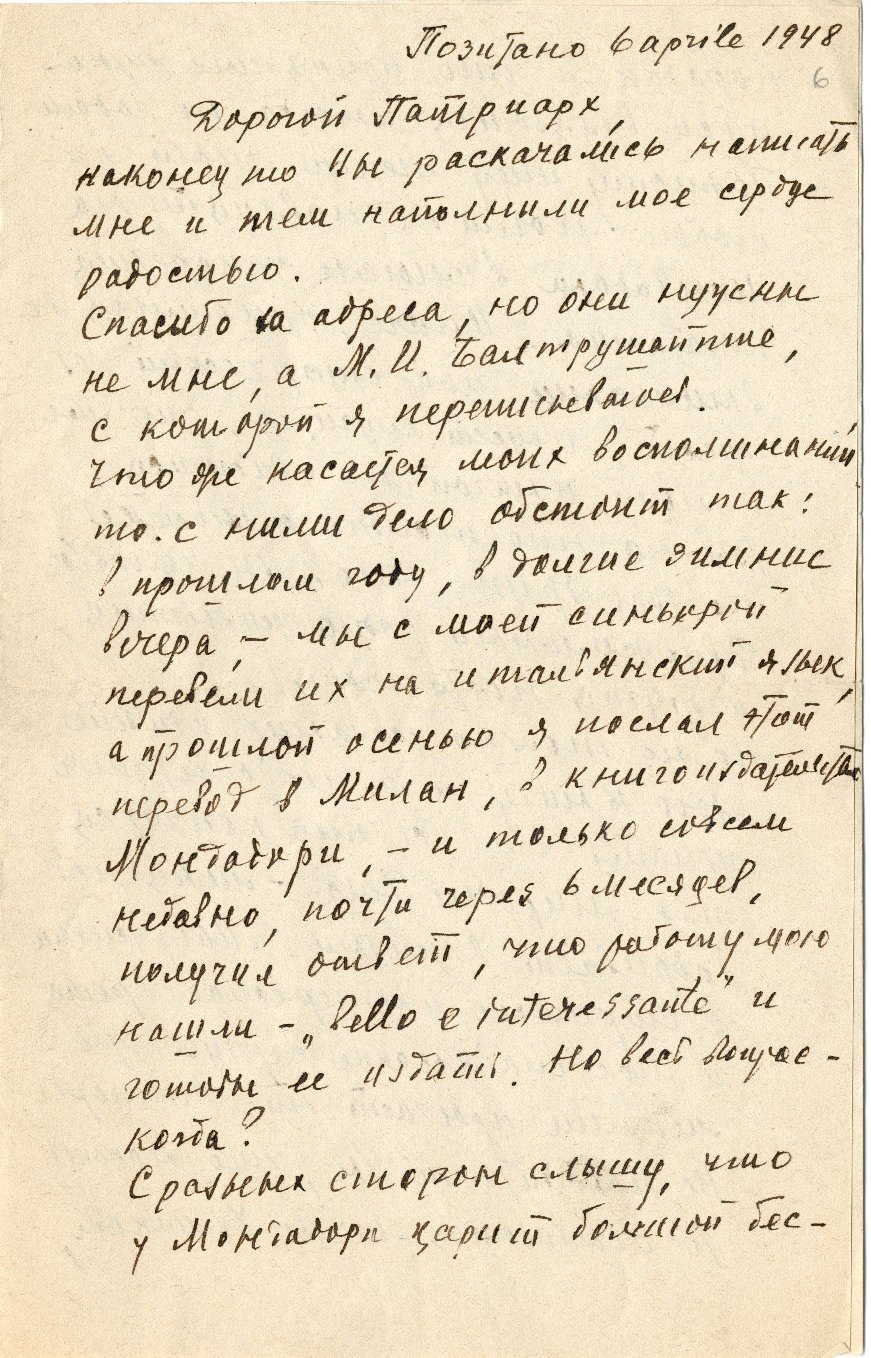 Позитано 6 aprile 1948
6
Дорогой Патриарх,
наконец то Вы раскачались написать
мне и тем наполнили мое сердце
радостью.
Спасибо за адреса, но они нужны
не мне, а М. И. Балтрушайтис,
с которой я переписываюсь.
Что же касается моих воспоминаний
то с ними дело обстоит так:
в прошлом году, в долгие зимние
вечера, – мы с моей синьорой
перевели их на итальянский язык,
а прошлой осенью я послал этот
перевод в Милан, в книгоиздательство
Мондадори, – и только совсем
недавно, почти через 6 месяцев,
получил ответ, что работу мою
нашли – „bello e interessante" и
готовы ее издать. Но весь вопрос –
когда?
С разных сторон слышу, что
у Мондадори царит большой бес-